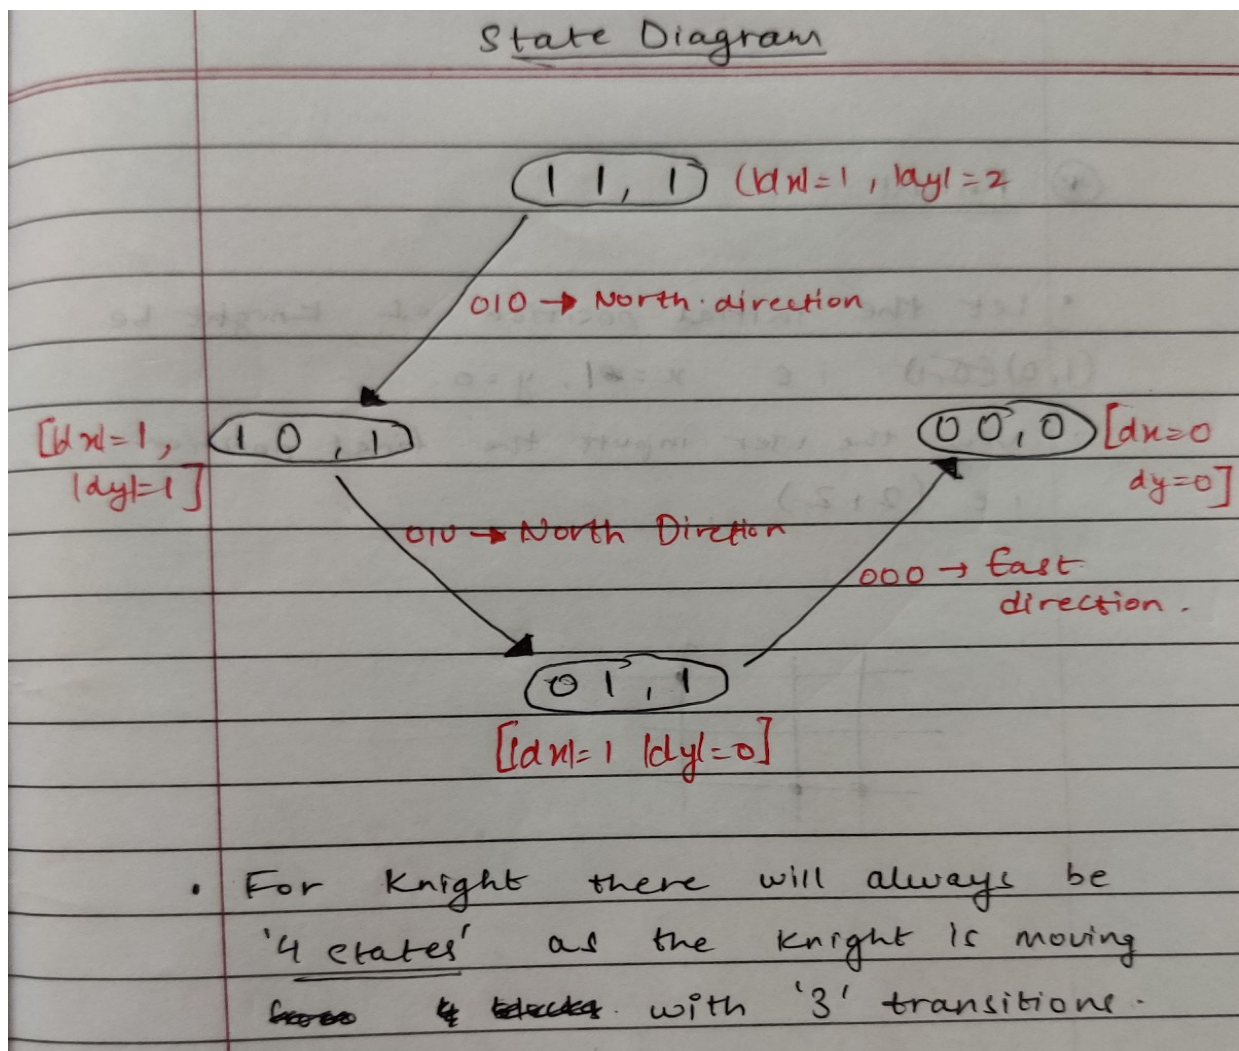 State Diagram
11, 1 (|dx|=1, |dy|=2
010 → North direction
[|dx|=1, 10, 1
|dy|=1]
00,0 [dx=0
dy=0]
010 → North Direction
000 → East
direction.
01, 1
[|dx|=1 |dy|=0]
• For Knight there will always be
'4 states' as the Knight is moving
with '3' transitions.